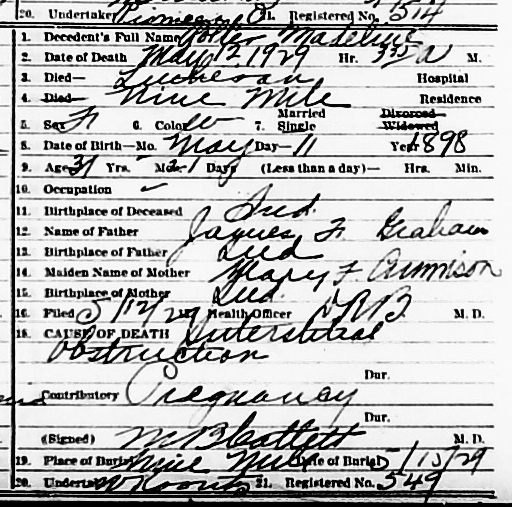 20. Undertaker Pioneer Co 21. Registered No. 514
1. Decedent's Full Name Madeline
2. Date of Death May 12 1929 Hr. A M.
3. Died— Lutheran Hospital
4. Died— Nine Mile Residence
5. Sex F 6. Color W 7. Married Single Divorced Widowed
8. Date of Birth—Mo. May Day— 11 Year 1898
9. Age 31 Yrs. Mos. 1 Days (Less than a day)— Hrs. Min.
10. Occupation ✓
11. Birthplace of Deceased Ind.
12. Name of Father James F. Graham
13. Birthplace of Father Ind
14. Maiden Name of Mother Mary F.
15. Birthplace of Mother Ind.
16. Filed 5/12/29 Health Officer M. D.
18. CAUSE OF DEATH
Obstruction
Dur.
Contributory Pregnancy
Dur.
(Signed) M B Catlett M. D.
19. Place of Burial Nine Mile Date of Burial 5/15/29
20. Undertaker 21. Registered No. 549